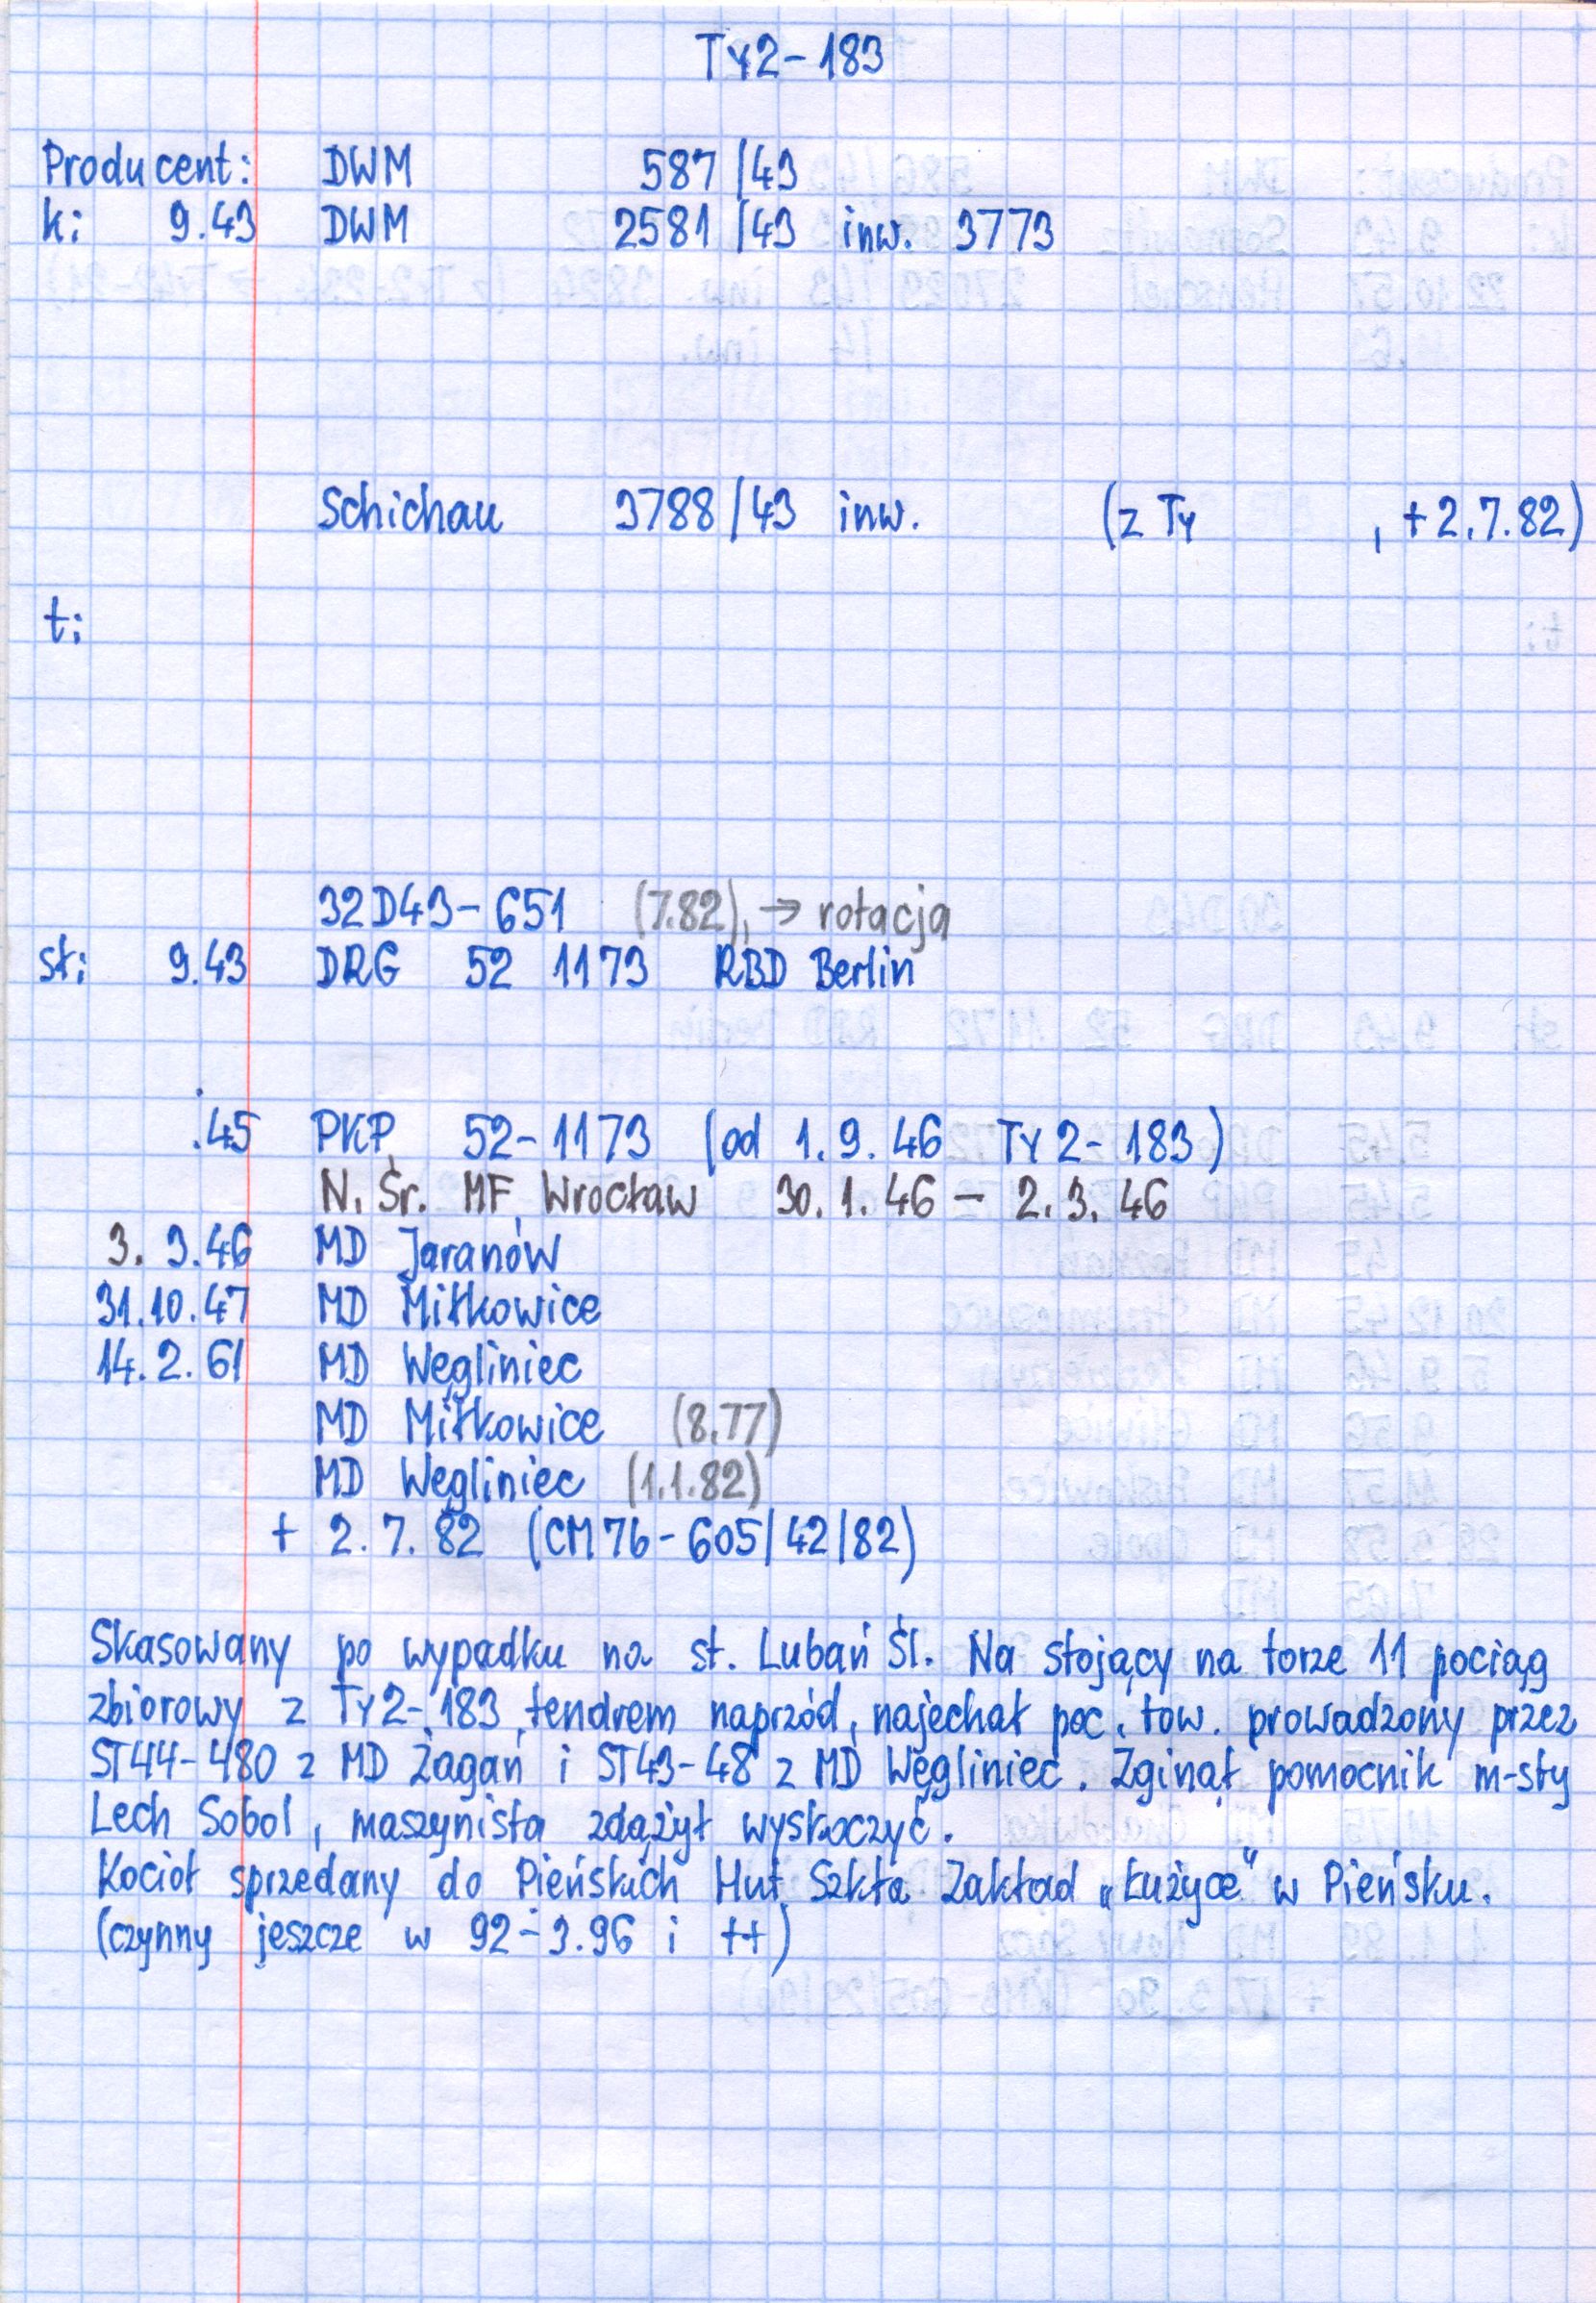 Ty2-183
Producent: DWM 587/43
k: 9.43 DWM 2581/43 inw. 3773
Schichau 3788/43 inw. (z Ty , +2.7.82)
t:
32D43-651 (7.82), → rotacja
st: 9.43 DRG 52 1173 RBD Berlin
.45 PKP 52-1173 (od 1.9.46 Ty2-183)
N. Śr. MF Wrocław 30.1.46 - 2.3.46
3.3.46 MD Jaranów
31.10.47 MD Miłkowice
14.2.61 MD Węgliniec
MD Miłkowice (8.77)
MD Węgliniec (1.1.82)
+ 2.7.82 (CM76-605/42/82)
Skasowany po wypadku na st. Lubań Śl. Na stojący na torze 11 pociąg
zbiorowy z Ty2-183 tendrem naprzód, najechał poc. tow. prowadzony przez
ST44-480 z MD Żagań i ST43-48 z MD Węgliniec. Zginął pomocnik m-sty
Lech Sobol, maszynista zdążył wyskoczyć.
Kocioł sprzedany do Pieńskich Hut Szkła Zakład „Łużyce" w Pieńsku.
(czynny jeszcze w 92-3.96 i ++)